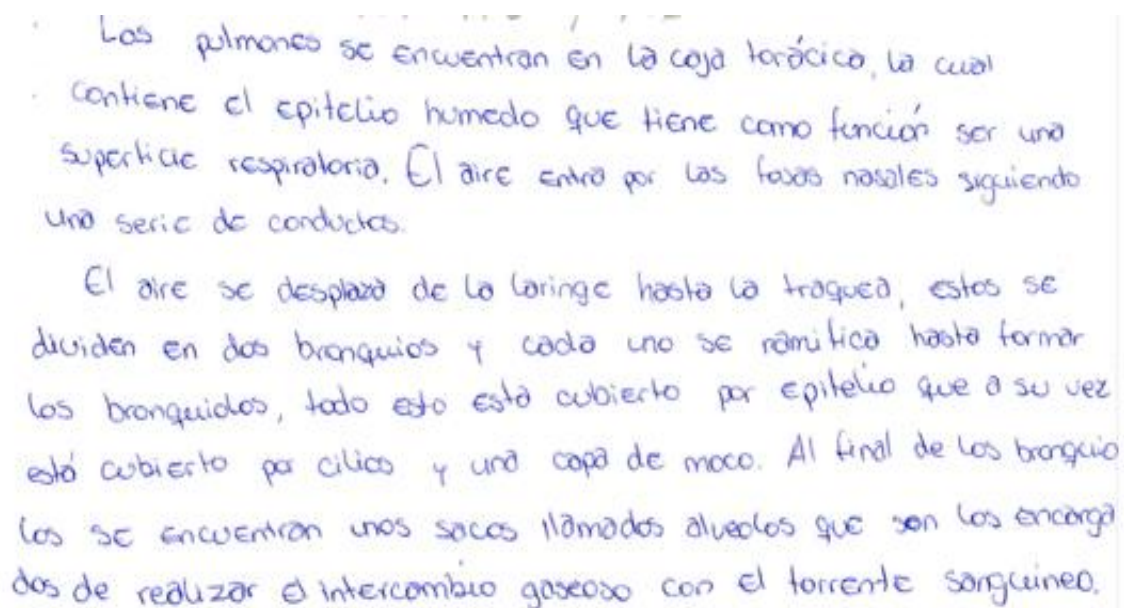 Los pulmones se encuentran en la caja torácica, la cual
contiene el epitelio humedo que tiene como función ser una
superficie respiratoria. El aire entra por las fosas nasales siguiendo
una serie de conductos.
El aire se desplaza de la laringe hasta la traquea, estos se
dividen en dos bronquios y cada uno se ramifica hasta formar
los bronquiolos, todo esto está cubierto por epitelio que a su vez
está cubierto por cilios y una capa de moco. Al final de los bronquio
los se encuentran unos sacos llamados alveolos que son los encarga
dos de realizar el intercambio gaseoso con el torrente sanguineo.